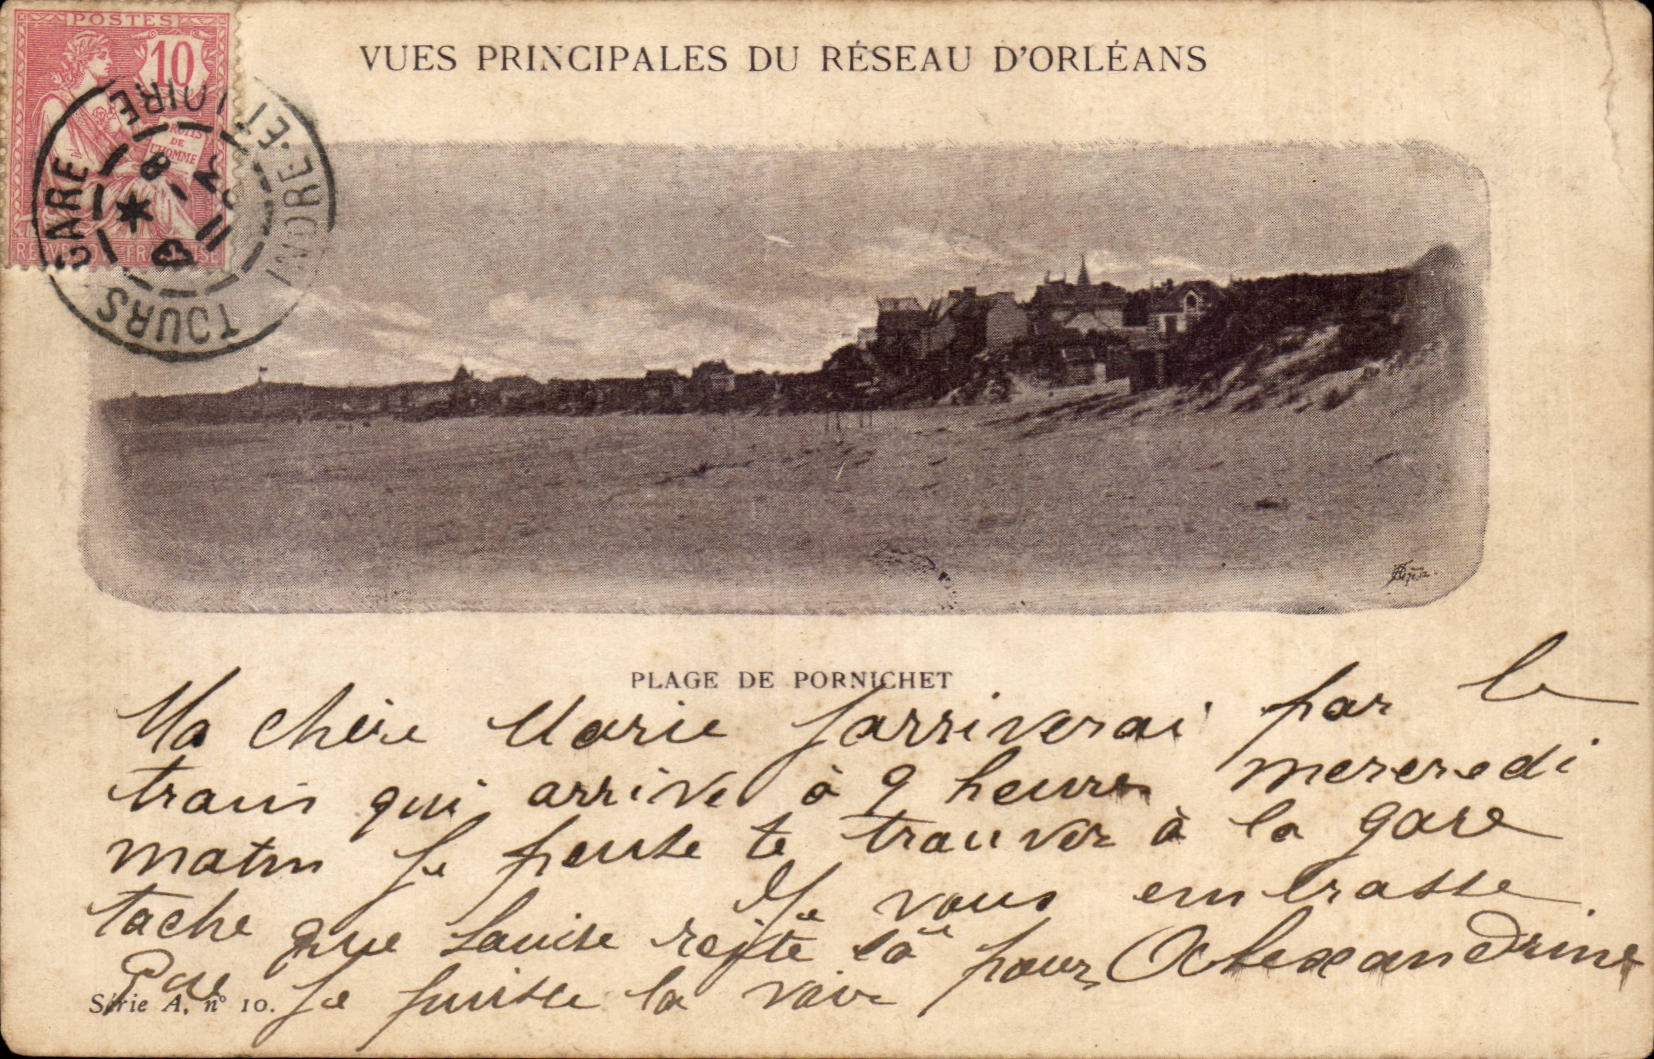 POSTES
10
DROITS
DE
L'HOMME
REPUBLIQUE FRANÇAISE
TOURS GARE
INDRE-ET-LOIRE
VUES PRINCIPALES DU RÉSEAU D'ORLÉANS
PLAGE DE PORNICHET
Ma chère Marie J'arriverai par le
train qui arrive à 9 heures mercredi
matin Je pense te trouver à la gare
Je vous embrasse
tache que Louise reste là pour Alexandrine
que Je puisse la voir
Série A, n° 10.